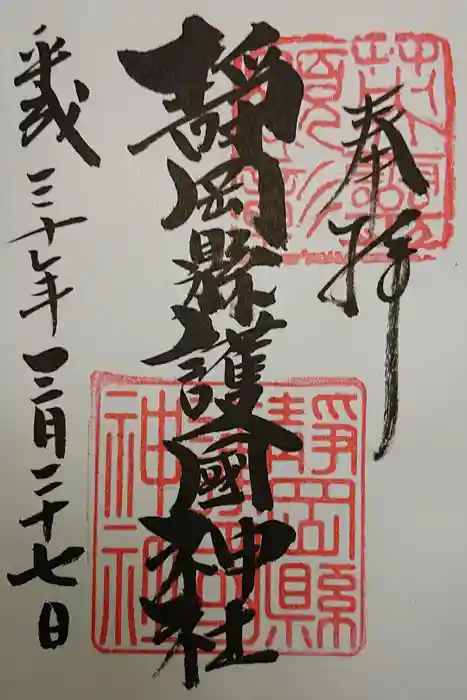 奉拝
靜岡縣護國神社
平成三十年十二月二十七日
靜岡縣護國神社